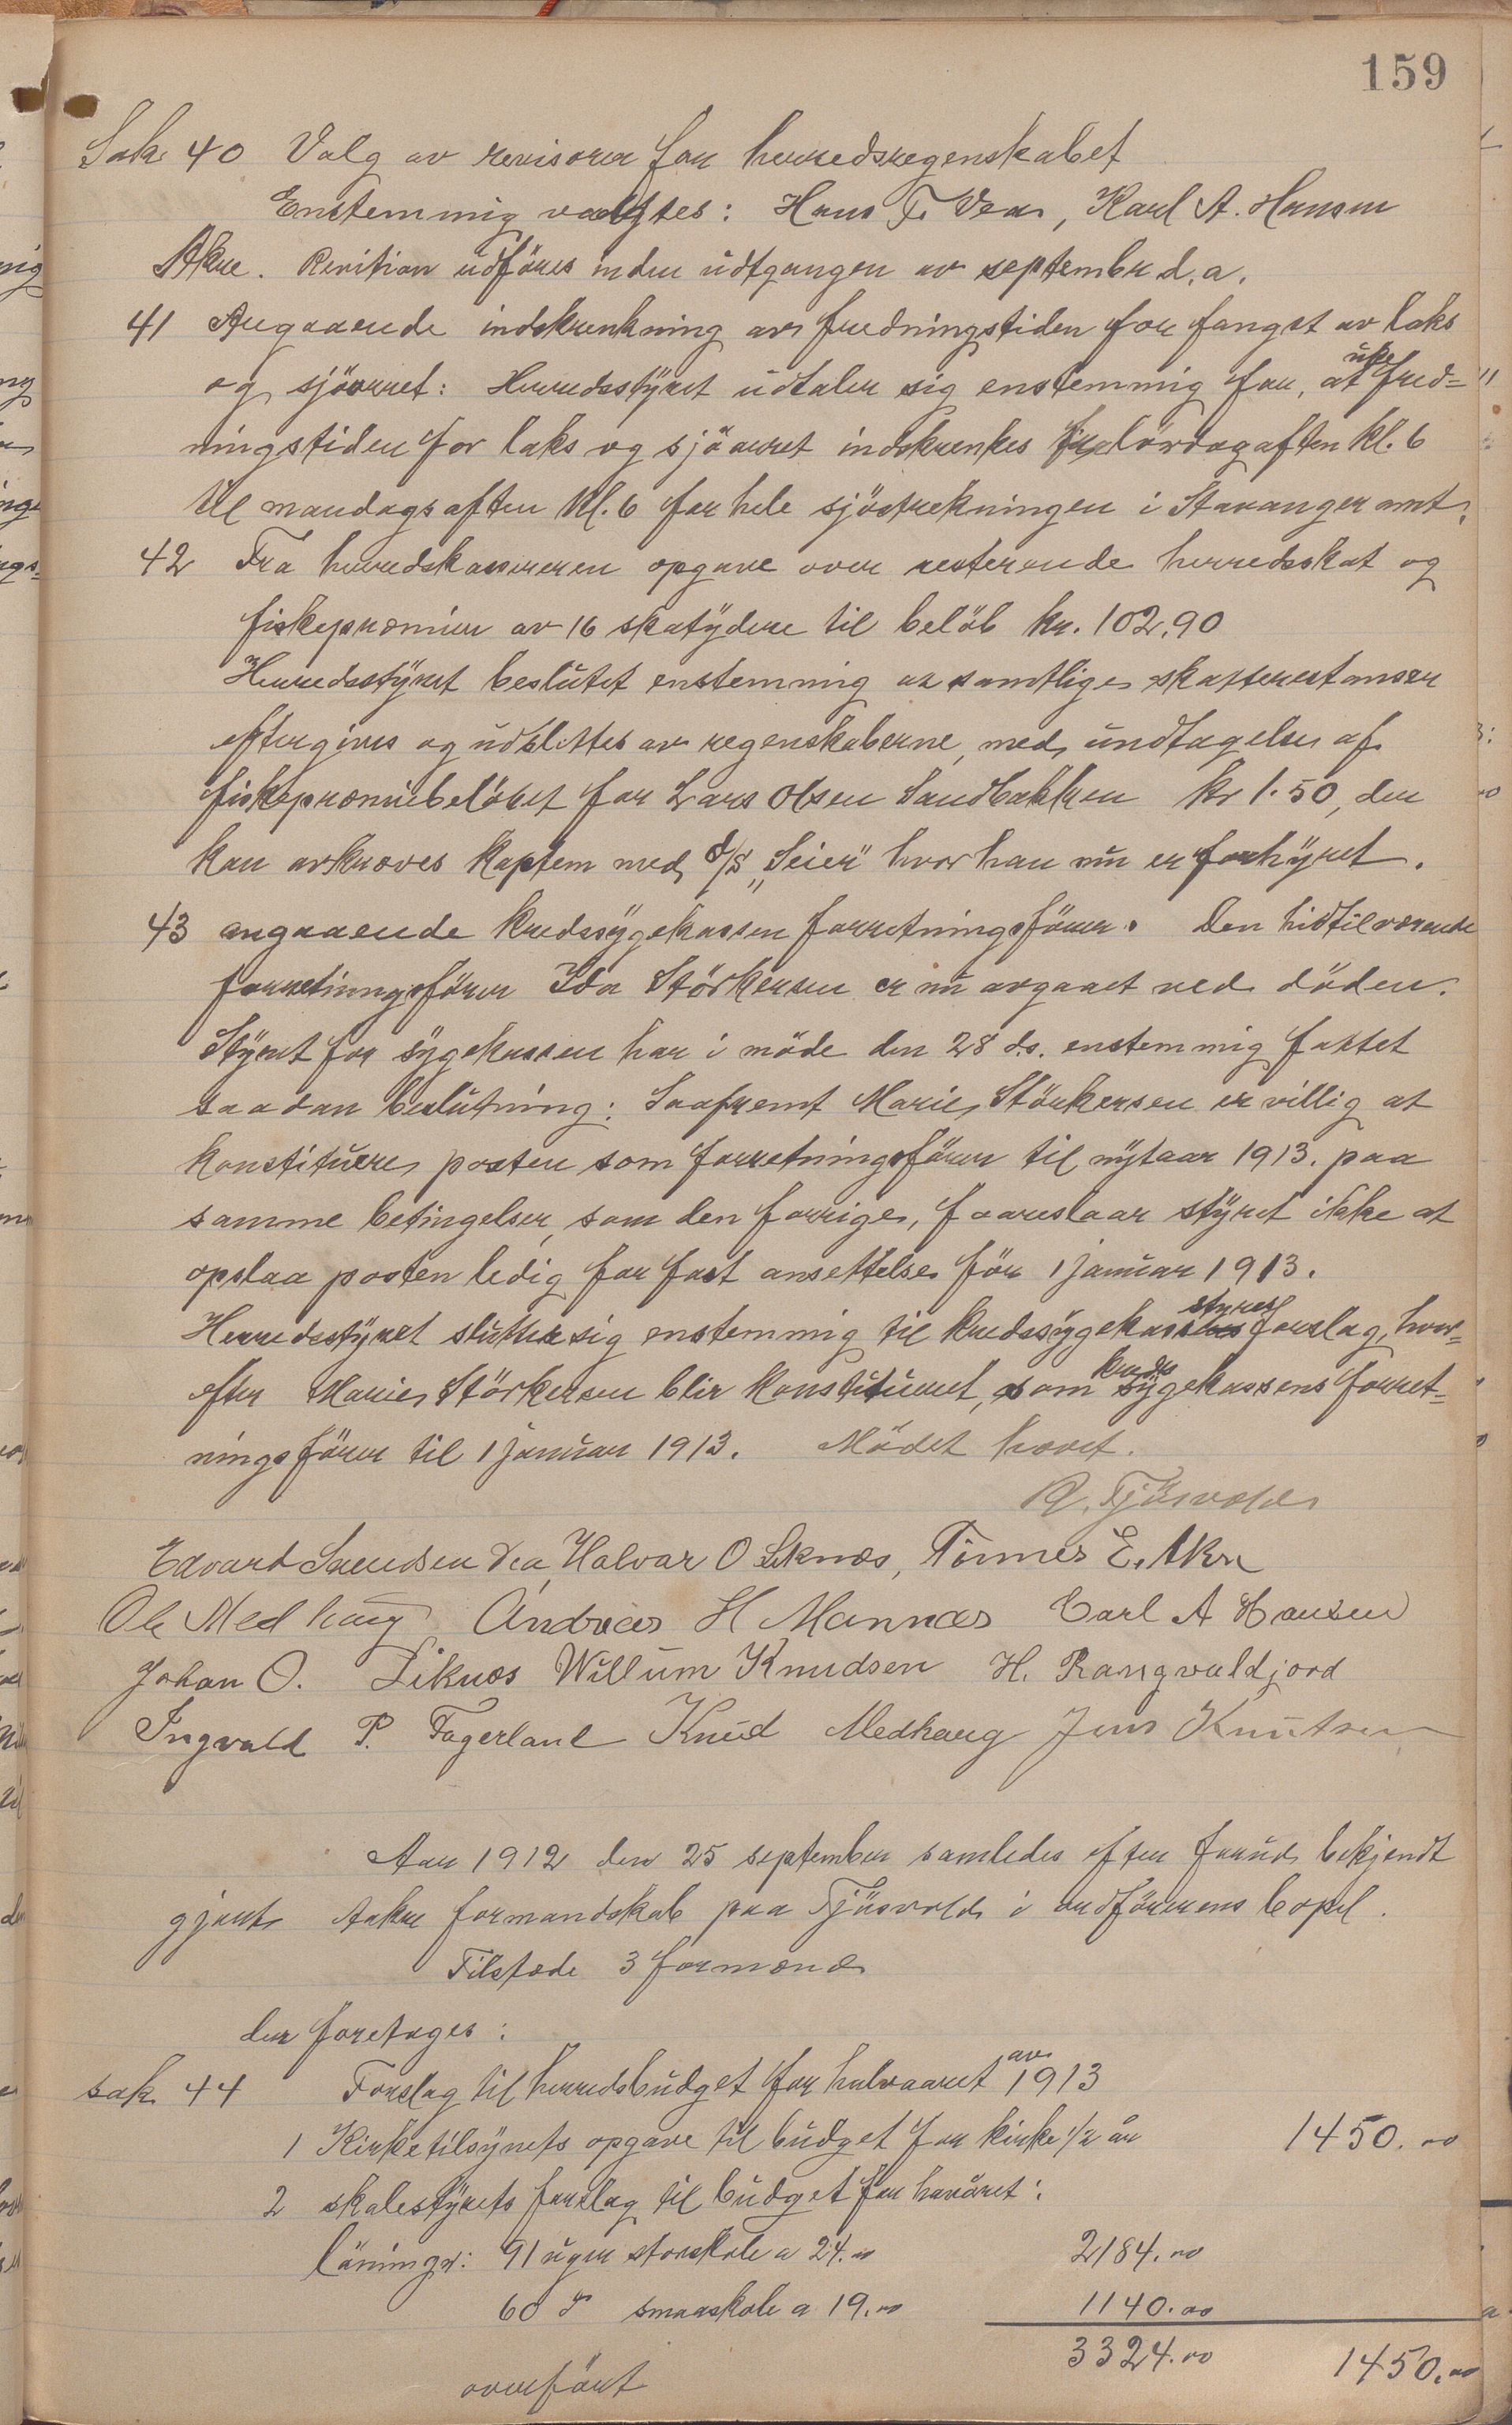 159
Sak 40 Valg av revisorer for herredsregenskabet
Enstemmig valgtes: Hans F. Vea, Karl A. Hansen
Akre. Revision udföres inden udtgangen av september d.a.
41 Angaaende indskrenkning av fredningstiden for fangst av laks
og sjöörret: Herredsstyret udtaler sig enstemmig for, at uke fred=
ningstiden for laks og sjöörret indskrenkes fra lördag aften kl. 6
til mandags aften kl. 6 for hele sjöstrekningen i Stavanger amt.
42 Fra herredskassereren opgave over resterende herredsskat og
fiskepræmier av 16 skatydere til belöb kr. 102,90
Herredsstyret beslutet enstemmig at samtlige skatterestanser
eftergives og udslettes av regenskaberne, med undtagelse af
fiskepræmiebelöbet for Lars Olsen Sandbakken kr 1.50, der
kan avkræves kaptein med d/s "Seier" hvor han nu er forhyret.
43 angaaende kredssygekassen forretningsförer. Den hidtilværende
forretningsförer Ida Störkersen er nu avgaaet ved döden.
Styret for sygekassen har i möde den 28 ds. enstemmig fattet
saadan beslutning: Saafremt Marie Störkersen er villig at
konstituere posten som forretningsförer til nytaar 1913. paa
samme betingelser, som den forrige, foareslaar styret ikke at
opslaa posten ledig for fast ansettelse för 1 januar 1913.
Herredsstyret slutter sig enstemmig til kredssygekassens styres forslag, hvor=
efter Marie Störkersen blir konstitueret, som kreds sygekassens forret=
ningsförer til 1 januar 1913. Mödet hævet.
R. Tjösvold
Edvard Svendsen Vea, Halvar O Liknæs, Tönnes E. Akre
Ole Medhaug Andreas H Mannæs Carl A Hansen
Johan O. Liknæs Willum Knudsen H. Rangvaldjord
Ingvald P. Fagerland Knud Medhaug Jens Knutsen
Aar 1912 den 25 september samledes efter forud bekjendt
gjort Aakre formandskab paa Tjösvold i ordförerens bopel.
Tilstede 3 formænd
der foretages:
sak 44 Forslag til herredsbudget for halvaaret av 1913
1 Kirketilsynets opgave til budget for kirke 1/2 år 1450.00
2 skolestyrets forslag til budget for havåret:
löninger: 91 uger storskole a 24.00 2184.00
60 d° smaaskole a 19.00 1140.00
3324.00 1450.00
overfört